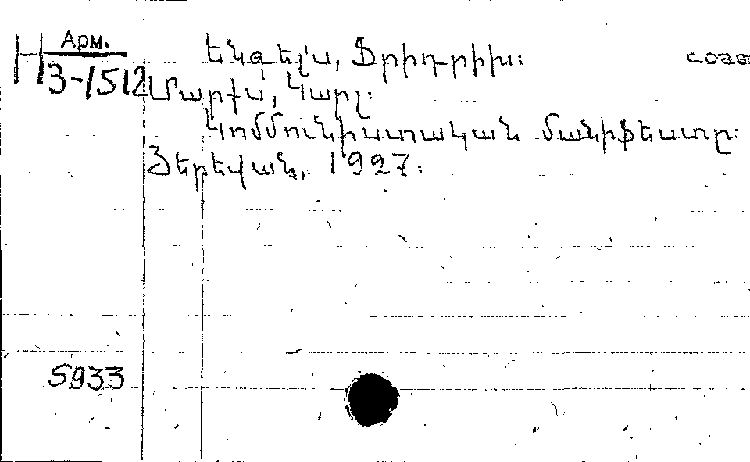 Н Арм.
3-1512
Ենգելս, Ֆրիդրիխ։ соав
Մարքս, Կարլ։
Կոմմունիստական մանիֆեստը։
Յերեվան, 1927։
5933